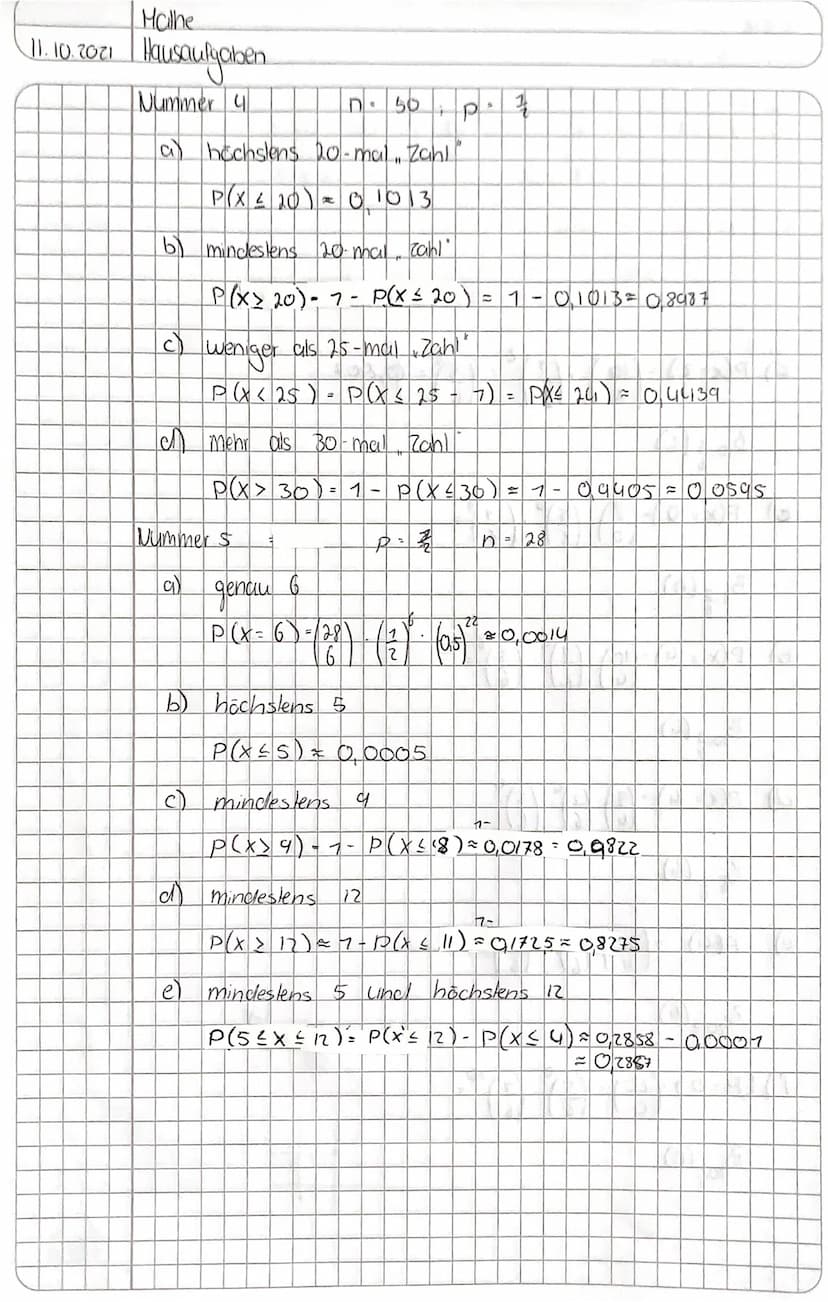 Mathe
11.10.2021 Hausaufgaben
Nummer 4 n = 50 ; p = 1/2
a) höchstens 20-mal „Zahl"
P(X ≤ 20) ≈ 0,1013
b) mindestens 20-mal „Zahl"
P(X ≥ 20) = 1 - P(X ≤ 20) = 1 - 0,1013 = 0,8987
c) weniger als 25-mal „Zahl"
P(X < 25) = P(X ≤ 25 - 1) = P(X ≤ 24) ≈ 0,4439
d) mehr als 30-mal „Zahl"
P(X > 30) = 1 - P(X ≤ 30) = 1 - 0,9405 ≈ 0,0595
Nummer 5 : p = 1/2 n = 28
a) genau 6
P(X = 6) = (28 6) · (1/2)^6 · (0,5)^22 ≈ 0,0014
b) höchstens 5
P(X ≤ 5) ≈ 0,0005
c) mindestens 9
P(X ≥ 9) = 1 - P(X ≤ 8) ≈ 1- 0,0178 = 0,9822
d) mindestens 12
P(X ≥ 12) ≈ 1 - P(X ≤ 11) ≈ 1- 0,1725 ≈ 0,8275
e) mindestens 5 und höchstens 12
P(5 ≤ X ≤ 12) = P(X ≤ 12) - P(X ≤ 4) ≈ 0,2858 - 0,0001
≈ 0,2857